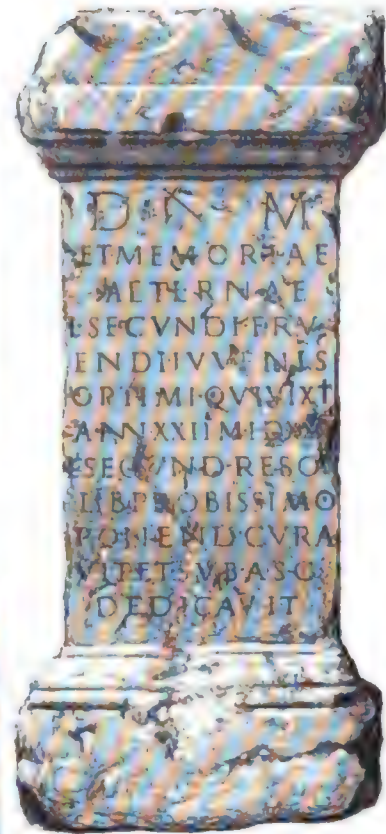 D M
ET MEMORIAE
AETERNAE
L SECVNDI FRV
ENDI IVVENIS
OPTIMI QVI VIXIT
ANN XXII M I D
L SECVND RESO
LIB PROBISSIMO
PONEND CVRA
VIT ET SVB ASC
DEDICAVIT